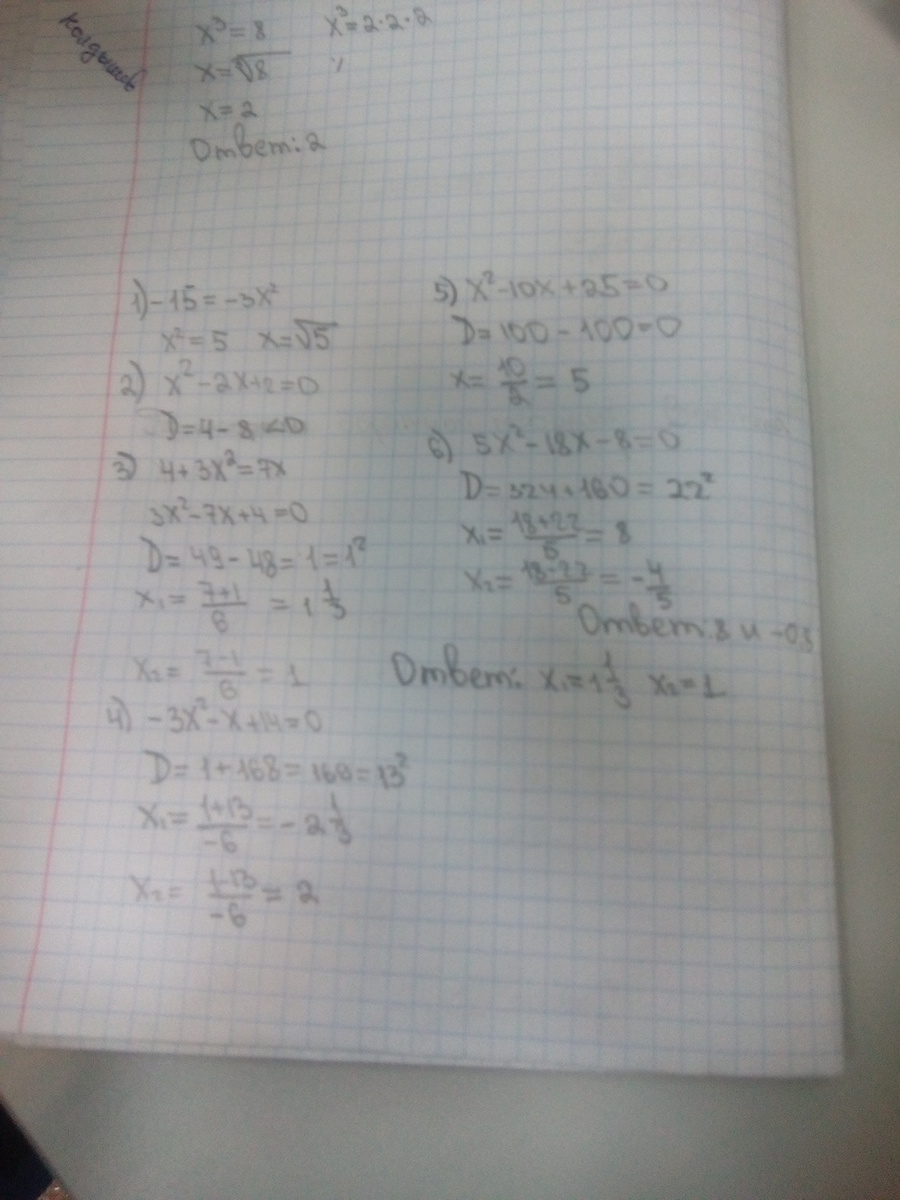 Колдышев
x³=8 x³=2·2·2
x=∛8
x=2
Ответ: 2
1) -15=-3x²
x²=5 x=√5
2) x²-2x+2=0
D=4-8<0
3) 4+3x²=7x
3x²-7x+4=0
D=49-48=1=1²
x₁=(7+1)/6=1 1/3
x₂=(7-1)/6=1
Ответ: x₁=1 1/3 x₂=1
4) -3x²-x+14=0
D=1+168=169=13²
x₁=(1+13)/-6=-2 1/3
x₂=(1-13)/-6=2
5) x²-10x+25=0
D=100-100=0
x=10/2=5
6) 5x²-18x-8=0
D=324+160=22²
x₁=(18+22)/5=8
x₂=(18-22)/5=-4/5
Ответ: 8 и -0,8